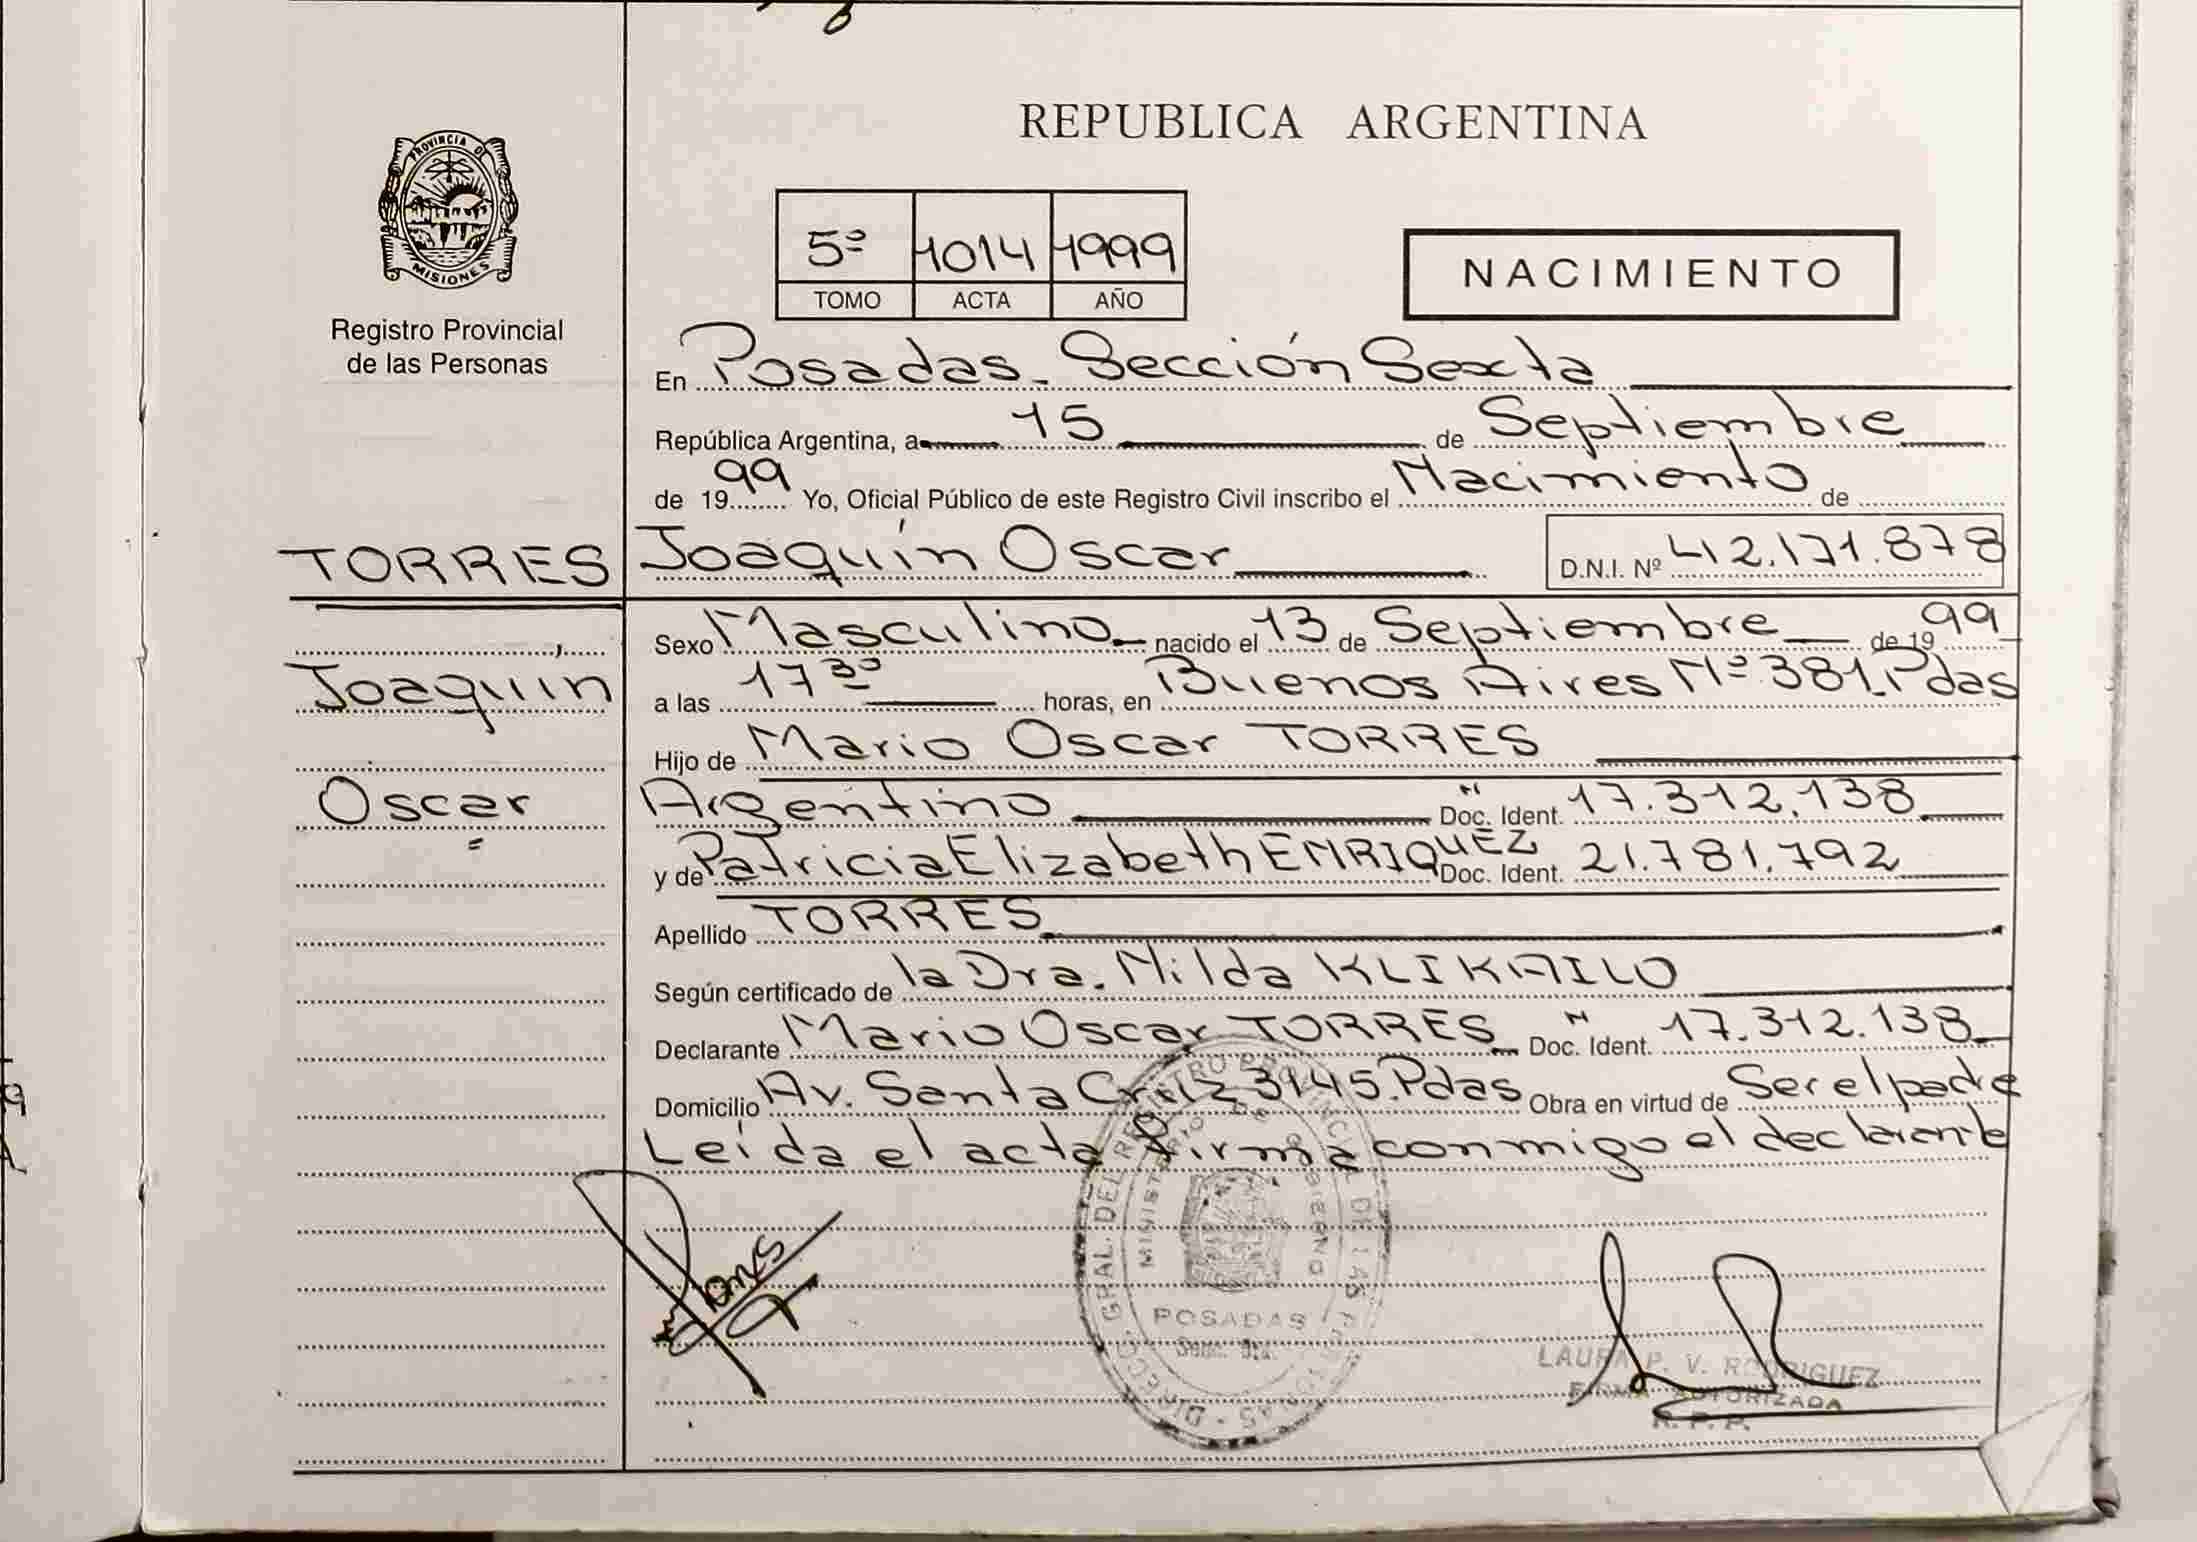 REPUBLICA ARGENTINA
PROVINCIA DE
MISIONES
Registro Provincial
de las Personas
5º 1014 1999
TOMO ACTA AÑO
NACIMIENTO
En Posadas - Sección Sexta
República Argentina, a 15 de Septiembre
de 1999 Yo, Oficial Público de este Registro Civil inscribo el Nacimiento de
TORRES Joaquín Oscar D.N.I. Nº 42.171.878
Sexo Masculino nacido el 13 de Septiembre de 1999
Joaquín
a las 17 30 horas, en Buenos Aires Nº 381. Pdas
Hijo de Mario Oscar TORRES
Oscar
Argentino Doc. Ident. 17.312.138
y de Patricia Elizabeth ENRIQUEZ Doc. Ident. 21.781.792
Apellido TORRES
Según certificado de la Dra. Nilda KLIKAILO
Declarante Mario Oscar TORRES Doc. Ident. 17.312.138
Domicilio Av. Santa Cruz 3145. Pdas Obra en virtud de Ser el padre
Leída el acta firma conmigo el declarante
DIRECC. GRAL. DEL REGISTRO PROVINCIAL DE LAS PERSONAS
MINISTERIO DE GOBIERNO
POSADAS
LAURA P. V. RODRIGUEZ
FIRMA AUTORIZADA
R. P. P.